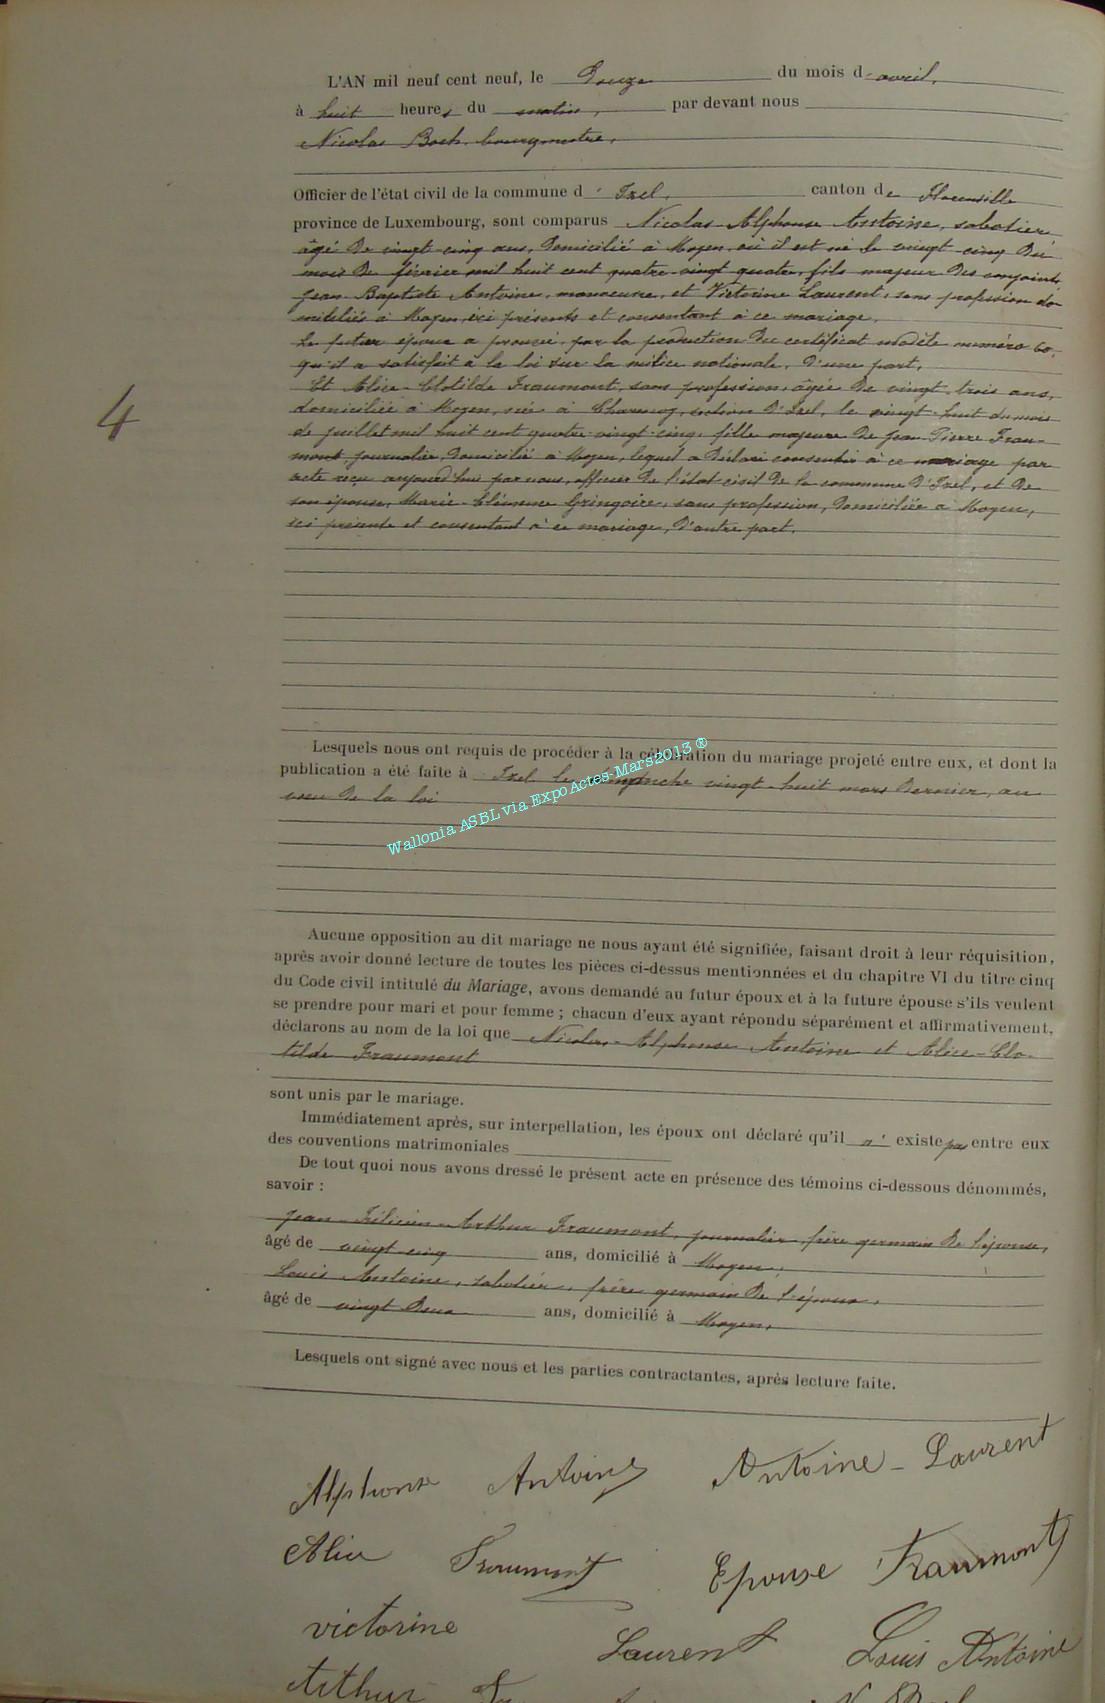 L'AN mil neuf cent neuf, le Douze du mois d'avril,
à huit heures du matin, par devant nous
Nicolas Bock, bourgmestre,
Officier de l'état civil de la commune d'Izel, canton de Florenville
province de Luxembourg, sont comparus Nicolas-Alphonse Antoine, sabotier
âgé de vingt-cinq ans, domicilié à Moyen où il est né le vingt-cinq du
mois de février mil huit cent quatre-vingt quatre, fils majeur des conjoints
Jean-Baptiste Antoine, manoeuvre, et Victorine Laurent, sans profession do-
miciliés à Moyen, ici présents et consentant à ce mariage.
Le futur époux a prouvé, par la production du certificat modèle numéro
qu'il a satisfait à la loi sur la milice nationale, d'une part.
Et Alice-Clotilde Fraumont, sans profession, âgée de vingt-trois ans,
domiciliée à Moyen, née à section d'Izel, le vingt-huit du mois
de juillet mil huit cent quatre-vingt-cinq, fille majeure de Jean-Pierre Frau-
mont, journalier, domicilié à Moyen, lequel a déclaré consentir à ce mariage par
acte reçu aujourd'hui par nous, officier de l'état-civil de la commune d'Izel, et de
son épouse, Marie-Clémence Gringoire, sans profession, domiciliée à Moyen,
ici présente et consentant à ce mariage, d'autre part.
4
Lesquels nous ont requis de procéder à la célébration du mariage projeté entre eux, et dont la
publication a été faite à Izel le dimanche vingt-huit mars dernier, au
voeu de la loi
Wallonia ASBL via ExpoActes-Mars2013 ®
Aucune opposition au dit mariage ne nous ayant été signifiée, faisant droit à leur réquisition,
après avoir donné lecture de toutes les pièces ci-dessus mentionnées et du chapitre VI du titre cinq
du Code civil intitulé du Mariage, avons demandé au futur époux et à la future épouse s'ils veulent
se prendre pour mari et pour femme ; chacun d'eux ayant répondu séparément et affirmativement,
déclarons au nom de la loi que Nicolas-Alphonse Antoine et Alice-Clo-
tilde Fraumont
sont unis par le mariage.
Immédiatement après, sur interpellation, les époux ont déclaré qu'il n' existe pas entre eux
des conventions matrimoniales
De tout quoi nous avons dressé le présent acte en présence des témoins ci-dessous dénommés,
savoir :
Jean-Félicien-Arthur Fraumont, journalier, frère germain de l'épouse,
âgé de vingt cinq ans, domicilié à Moyen,
Louis Antoine, sabotier, frère germain de l'époux,
âgé de vingt deux ans, domicilié à Moyen,
Lesquels ont signé avec nous et les parties contractantes, après lecture faite.
Alphonse Antoine Antoine-Laurent
Alice Fraumont Epouse Fraumont
victorine Laurent Louis Antoine
Arthur